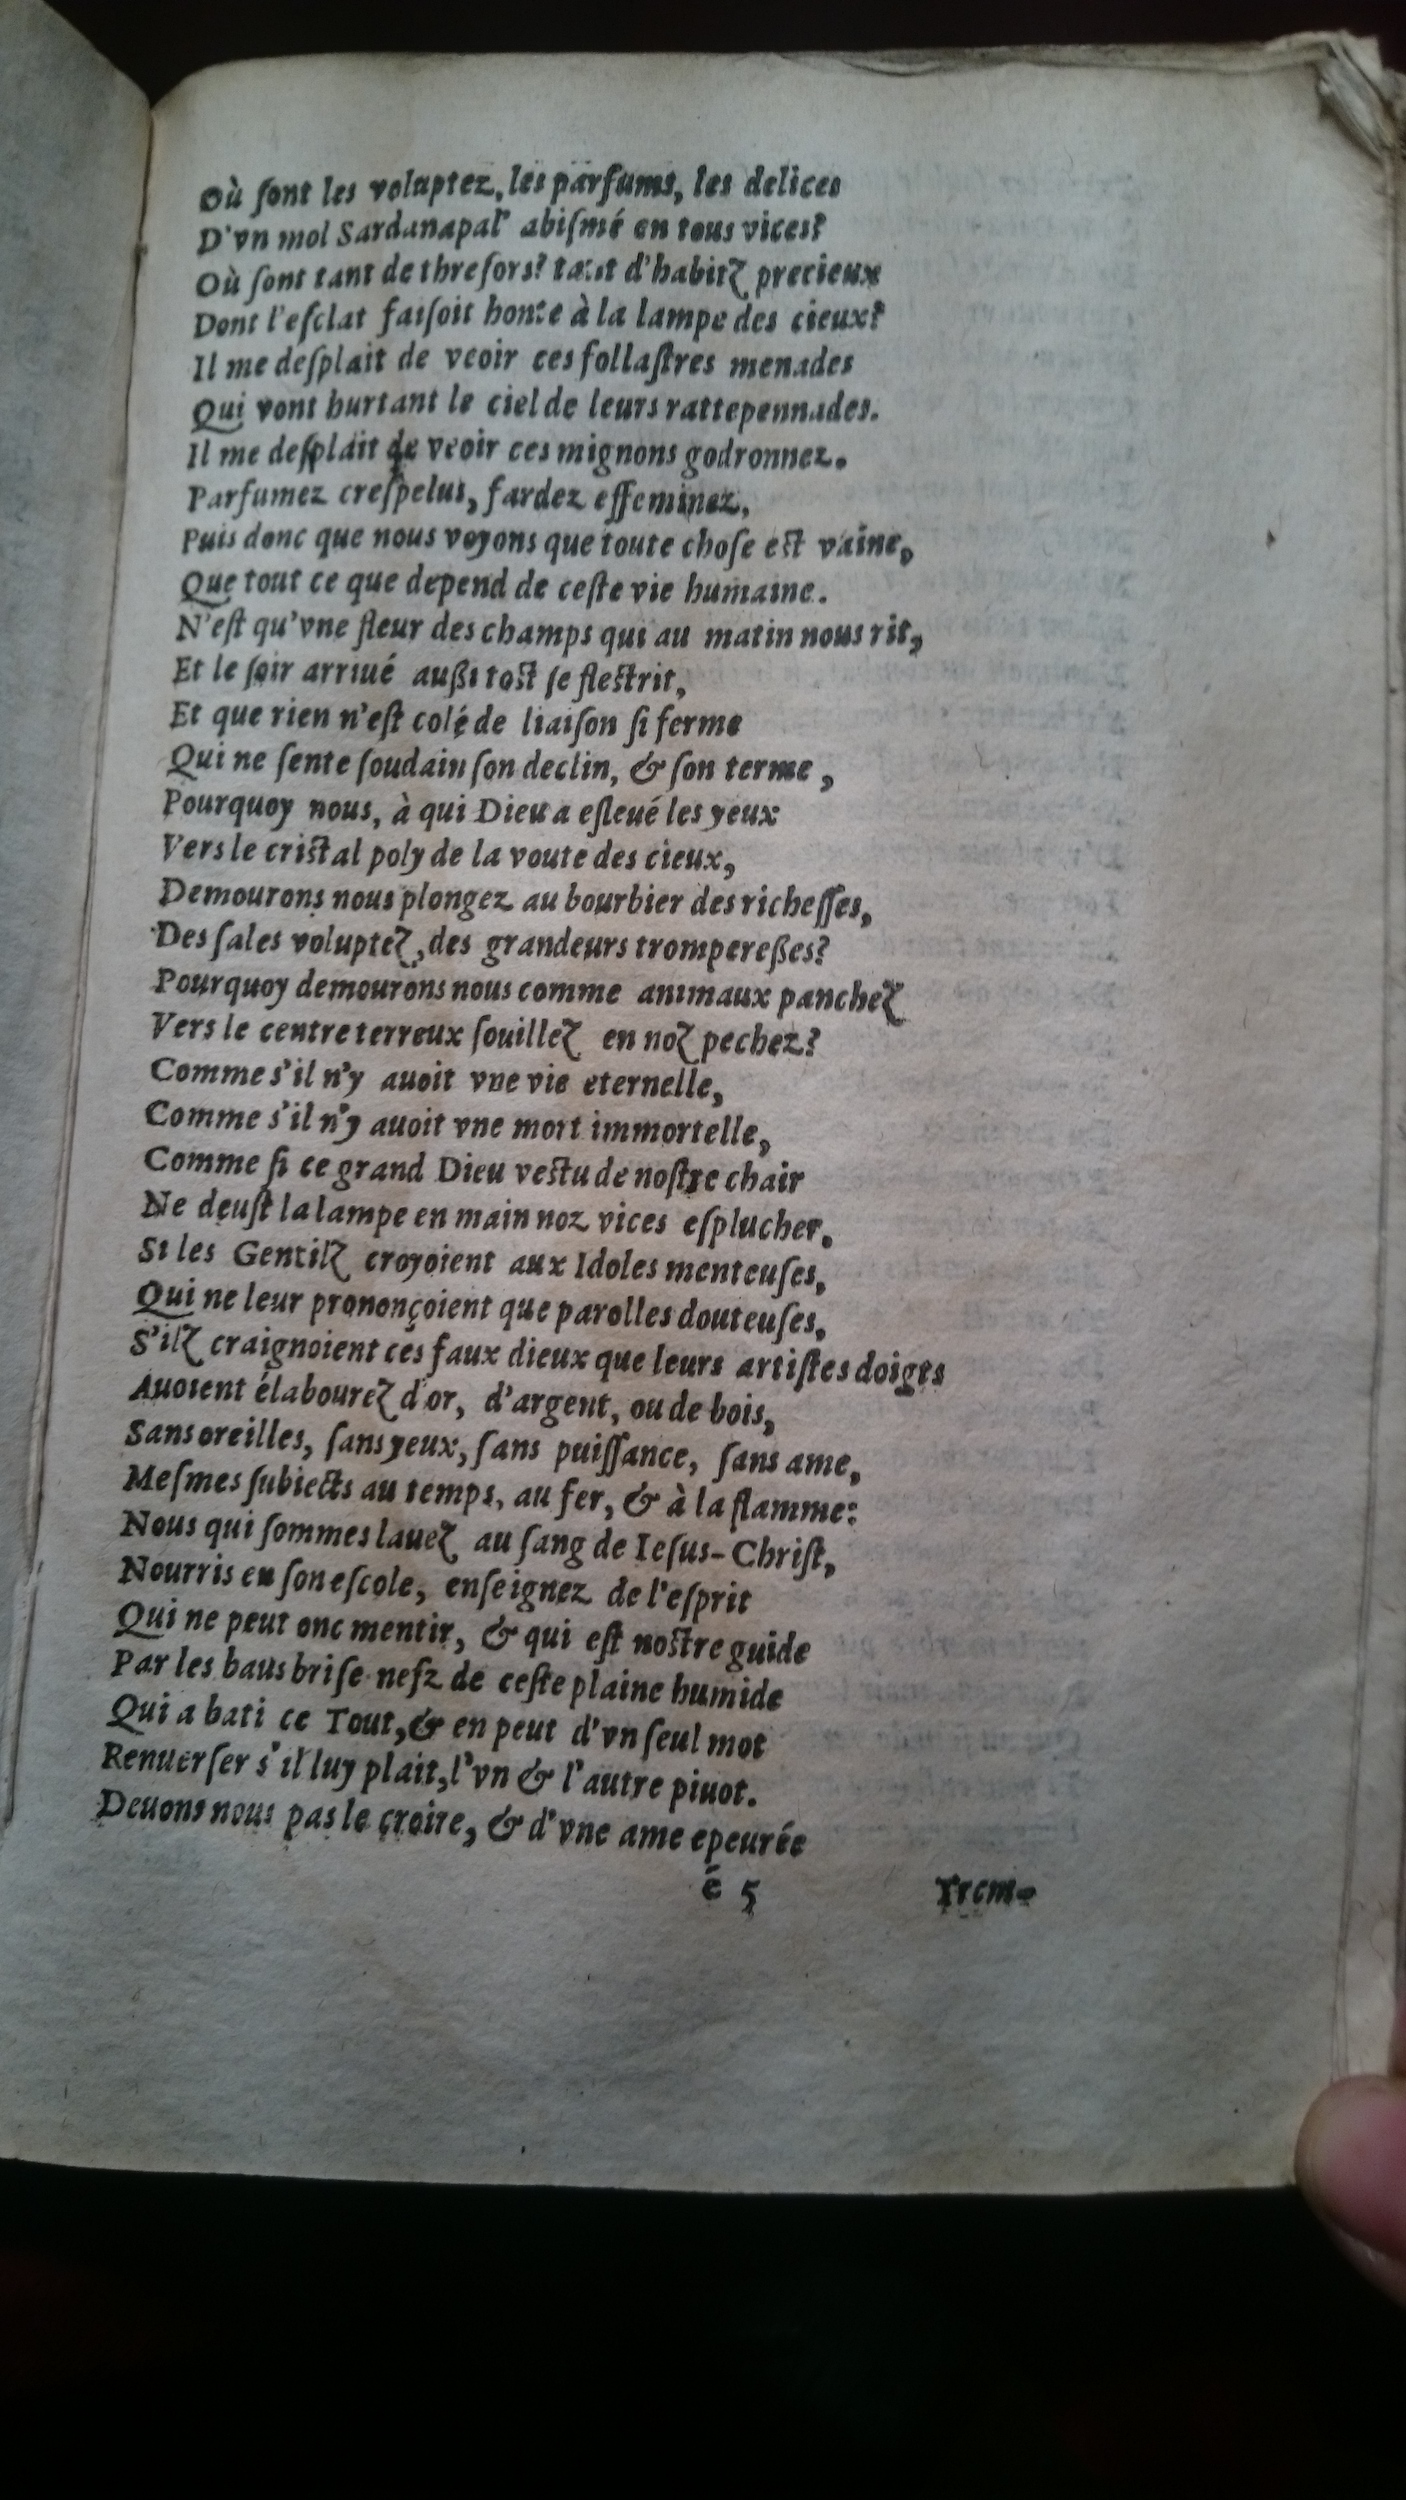 Où ſont les voluptez, les parfums, les delices
D'vn mol Sardanapal' abiſmé en tous vices?
Où ſont tant de threſors? tant d'habitz precieux
Dont l'eſclat faiſoit honte à la lampe des cieux?
Il me deſplait de veoir ces follaſtres menades
Qui vont hurtant le ciel de leurs rattepennades.
Il me deſplait de veoir ces mignons godronnez.
Parfumez creſpelus, fardez effeminez,
Puis donc que nous voyons que toute choſe eſt vaine,
Que tout ce que depend de ceſte vie humaine.
N'eſt qu'vne fleur des champs qui au matin nous rit,
Et le ſoir arriué außi toſt ſe fleſtrit,
Et que rien n'eſt colé de liaiſon ſi ferme
Qui ne ſente ſoudain ſon declin, & ſon terme,
Pourquoy nous, à qui Dieu a eſleué les yeux
Vers le criſtal poly de la voute des cieux,
Demourons nous plongez au bourbier des richeſſes,
Des ſales voluptez, des grandeurs trompereßes?
Pourquoy demourons nous comme animaux panchez
Vers le centre terreux ſouillez en noz pechez?
Comme s'il n'y auoit vne vie eternelle,
Comme s'il n'y auoit vne mort immortelle,
Comme ſi ce grand Dieu veſtu de noſtre chair
Ne deuſt la lampe en main noz vices eſplucher.
Si les Gentilz croyoient aux Idoles menteuſes,
Qui ne leur prononçoient que parolles douteuſes,
S'ilz craignoient ces faux dieux que leurs artiſtes doigts
Auoient élabourez d'or, d'argent, ou de bois,
Sans oreilles, ſans yeux, ſans puiſſance, ſans ame,
Meſmes ſubiects au temps, au fer, & à la flamme:
Nous qui ſommes lauez au ſang de Ieſus-Chriſt,
Nourris en ſon eſcole, enſeignez de l'eſprit
Qui ne peut onc mentir, & qui eſt noſtre guide
Par les baus briſe-nefz de ceſte plaine humide
Qui a bati ce Tout, & en peut d'vn ſeul mot
Renuerſer s'il luy plait, l'vn & l'autre piuot.
Deuons nous pas le croire, & d'vne ame epeurée
é 5 Trem-